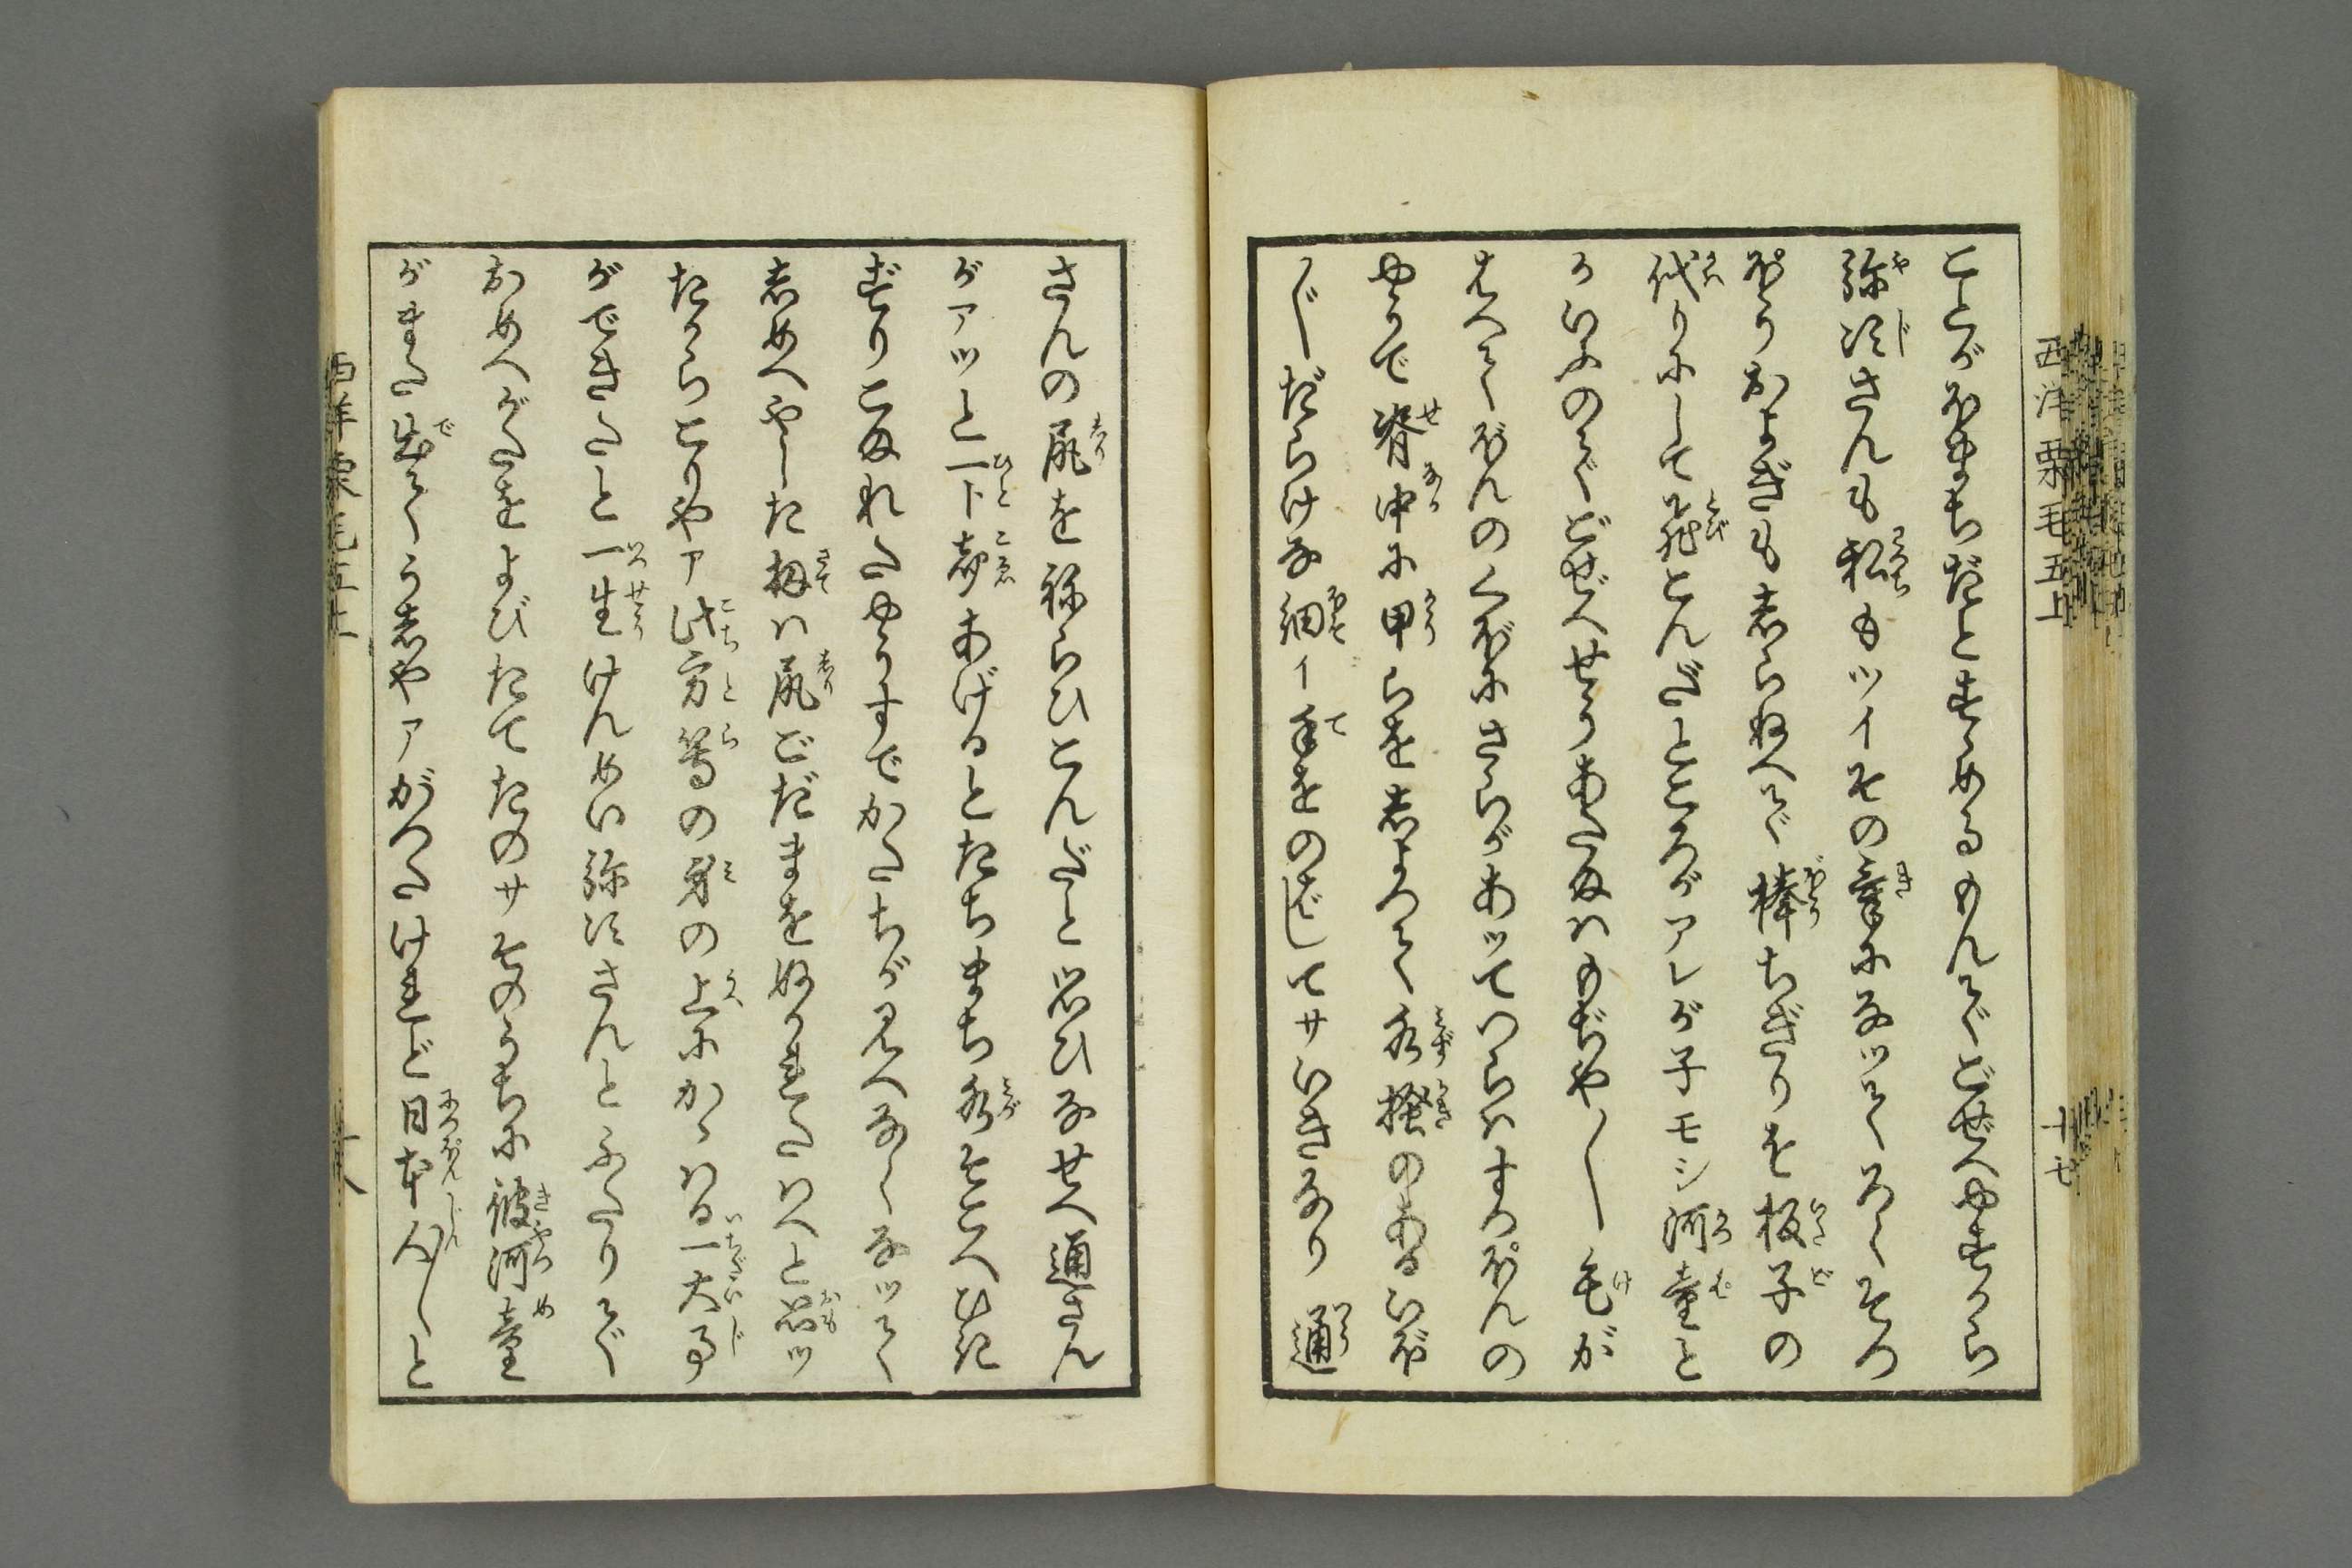 ことがおほまちだとすゝめるもんでごぜへやすから
弥次さんも私もツイその氣になッてろくそつ
ぽうおよぎもしらねへで棒ちぎりを板子の
代りにして飛とんだところがアレが子モシ河童と
かいふのでごぜへせうあたまハもぢや〳〵毛が
はへてぼんのくぼにさらがあッてつらハすつぽんの
やうで脊中に甲らをしよつて水掻のあるいぼ
〳〵だらけな細イ手をのばしてサいきなり通
さんの尻をねらひこんだと思ひなせへ通さん
がアッと一ト声あげるとたちまち水そこへひき
ずりこまれたやうすでかたちが見へなくなッて
しめへやした扨ハ尻ごだまをぬかれたハへと思ッ
たからこりやア此方等の身の上にかゝはる一大事
ができたと一生けんめい弥次さんとふたりで
おめへがたをよびたてたのサそのうちに彼河童
がまた出てうしやアがつたけれど日本人〳〵と
西洋栗毛五上
十七
西洋栗毛五上